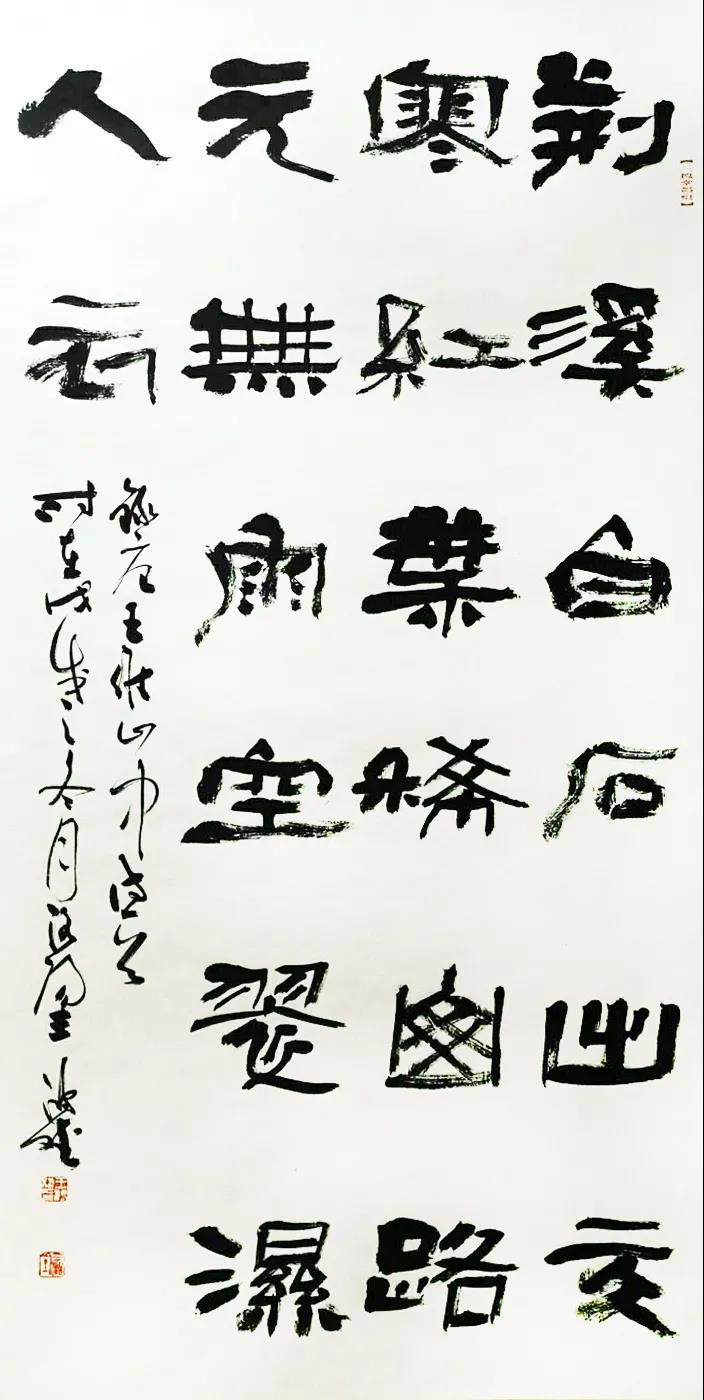 荊溪白石出天
寒紅葉稀山路
元無雨空翠濕
人衣
錄唐王維山中詩
時在戊戌之冬月